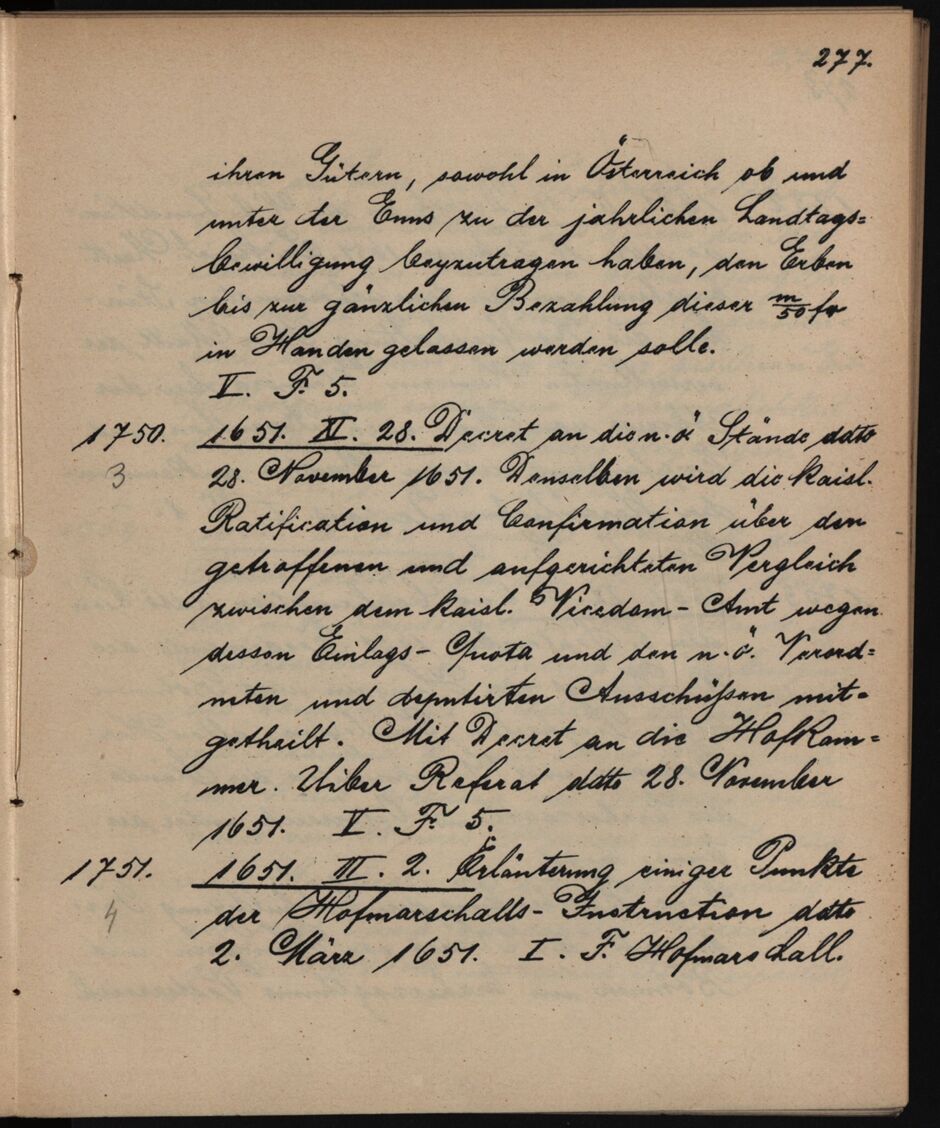 277.
ihren Gütern, sowohl in Österreich ob und
unter der Enns zu der jahrlichen Landtags=
bewilligung beyzutragen haben, den Erben
bis zur gänzlichen Bezahlung dieser m/50 fr
in Handen gelassen werden solle.
V. F. 5.
1750. 1651. XI. 28. Decret an die n. ö Stände ddto
3 28. November 1651. Denselben wird die kaisl.
Ratification und Confirmation über den
getroffenen und aufgerichteten Vergleich
zwischen dem kaisl. Vicedom-Amt wegen
dessen Einlags-Quota und den n. ö. Verord=
neten und deputirten Ausschüßen mit=
getheilt. Mit Decret an die Hofkam=
mer. Uiber Referat ddto 28. November
1651. V. F. 5.
1751. 1651. III. 2. Erläuterung einiger Punkte
4 der Hofmarschalls-Instruction ddto
2. März 1651. I. F. Hofmarschall.